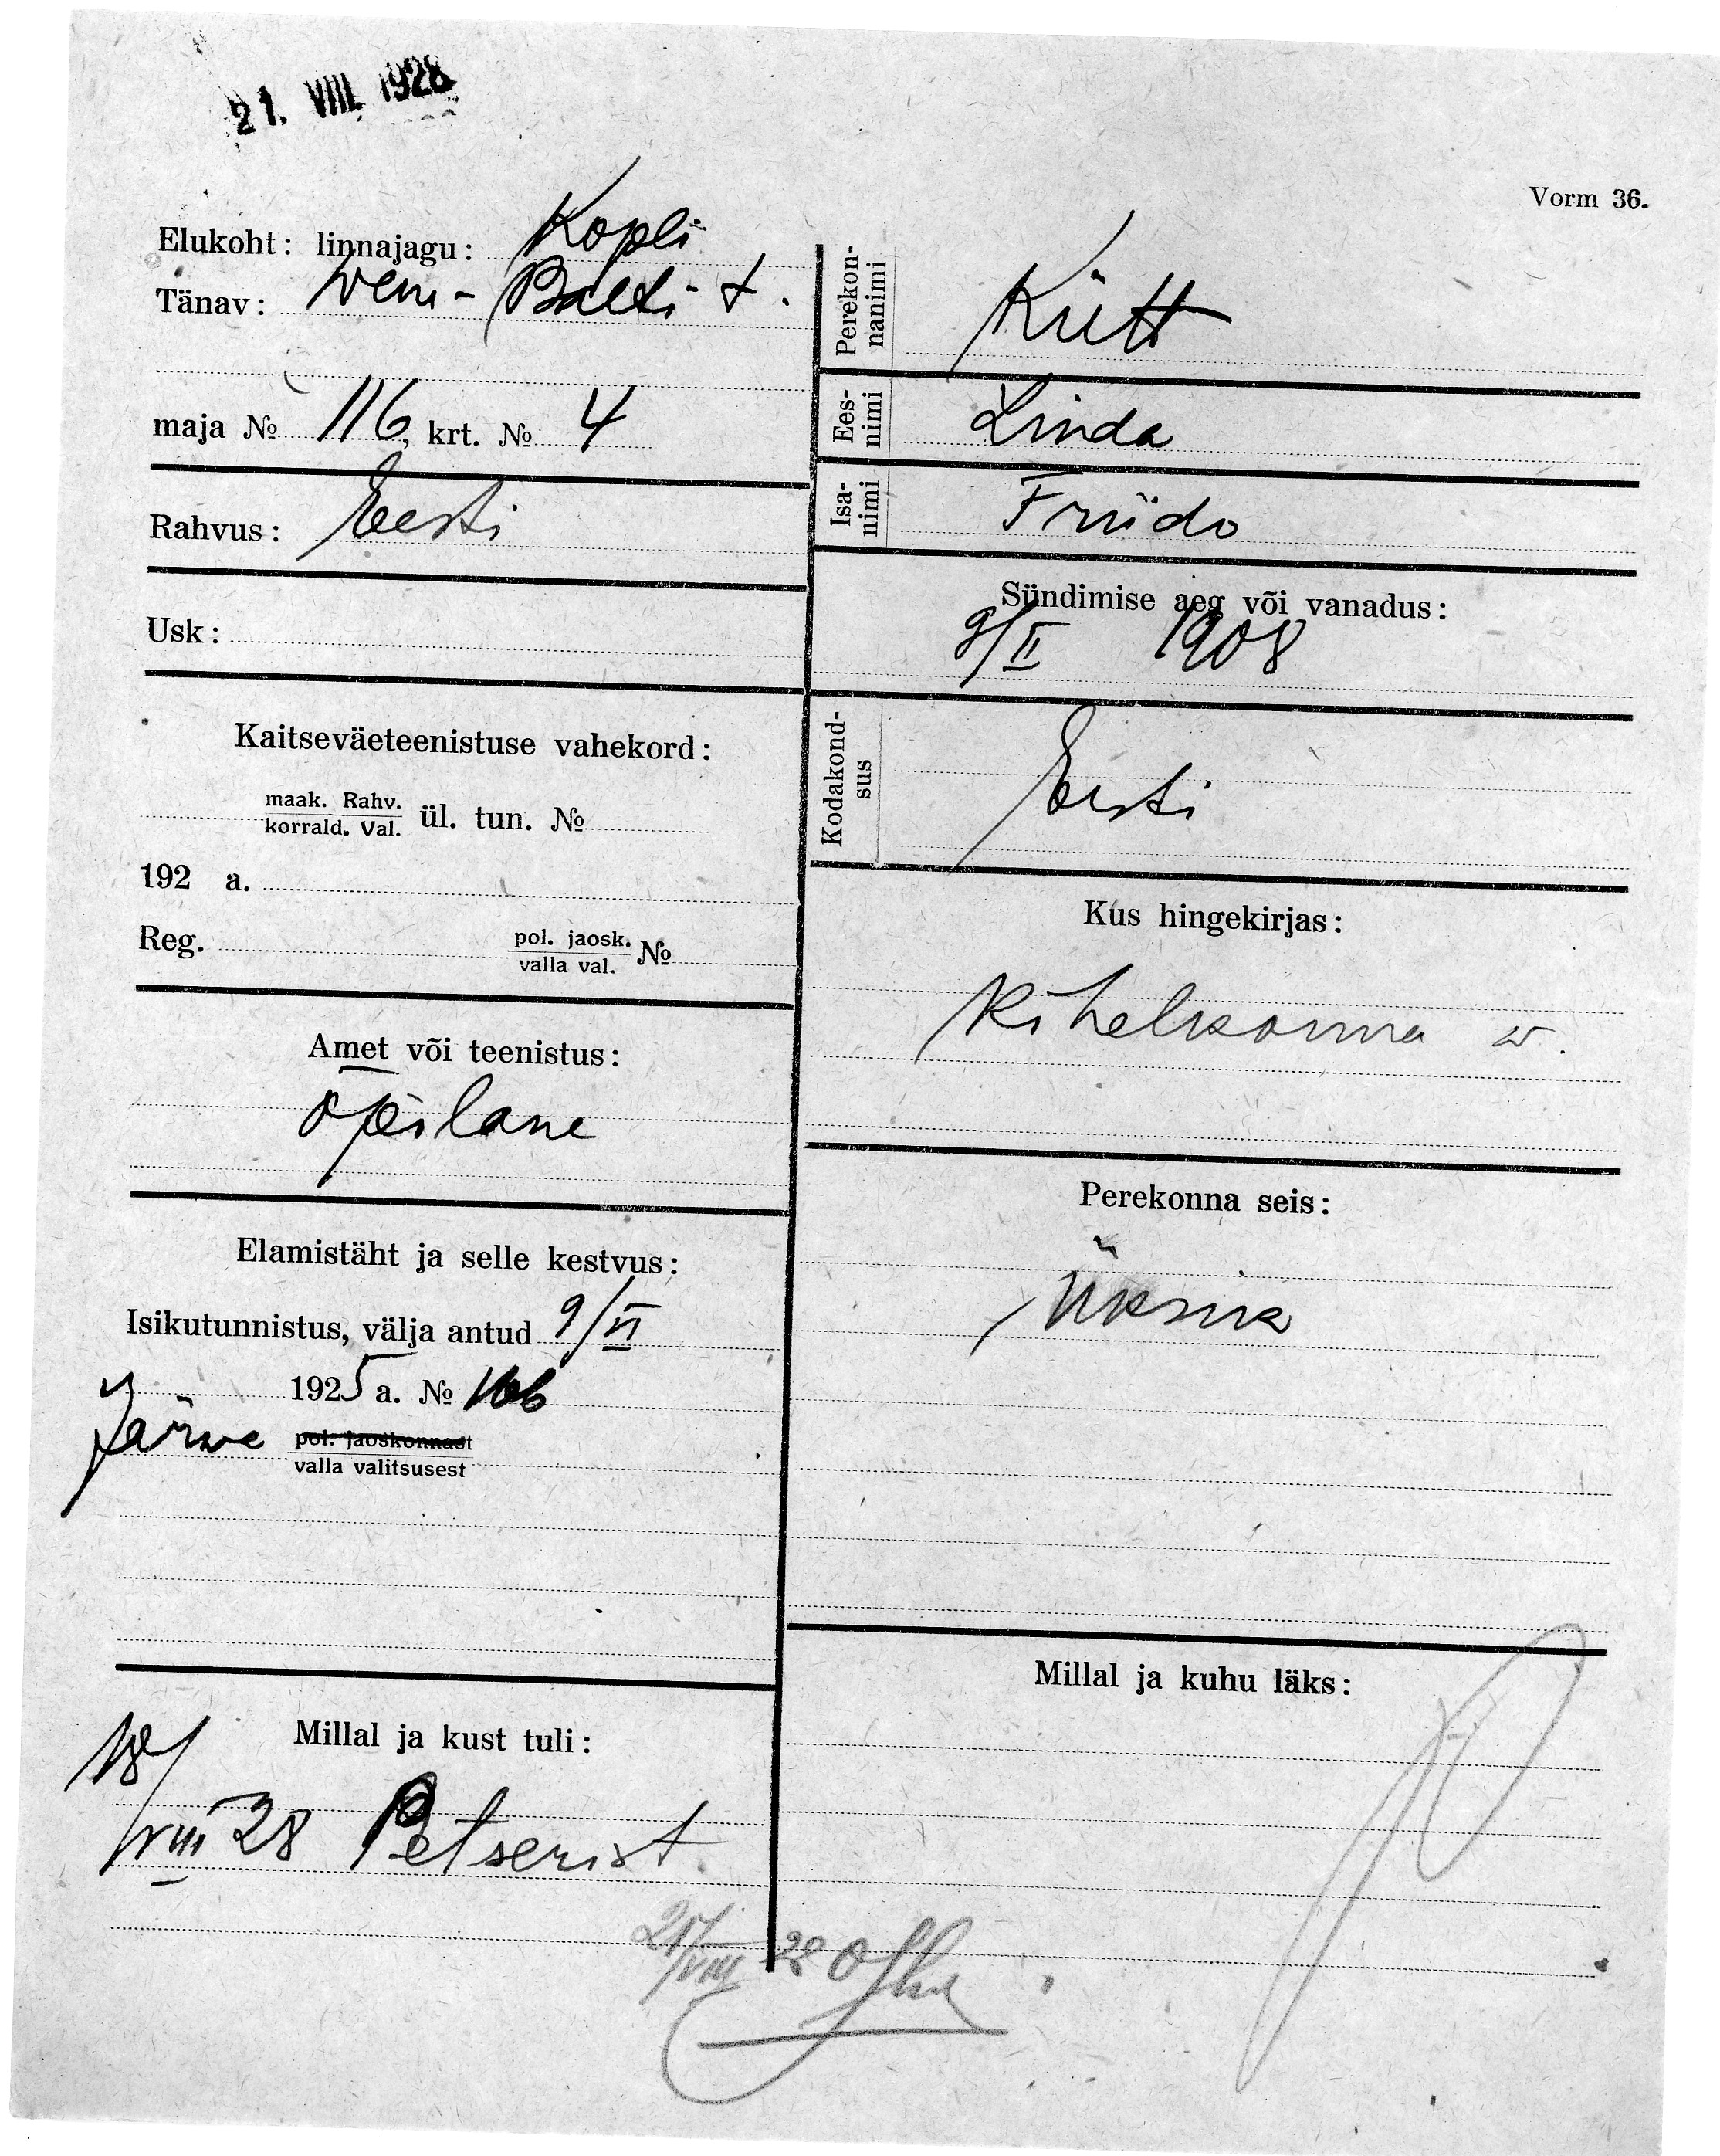 21. VIII. 1928
Vorm 36.
Elukoht: linnajagu: Kopli
Tänav: Wene-Balti t.
maja № 116, krt. № 4
Rahvus: Eesti
Usk:
Kaitseväeteenistuse vahekord:
maak. Rahv.
korrald. Val. ül. tun. №
192 a.
Reg. pol. jaosk.
valla val. №
Amet või teenistus:
õpilane
Elamistäht ja selle kestvus:
Isikutunnistus, välja antud 9/VI
1925 a. № 166
Järve pol. jaoskonnast
valla valitsusest
Millal ja kust tuli:
18/VIII 28 Petserist
Perekon-
nanimi Kütt
Ees-
nimi Linda
Isa-
nimi Friido
Sündimise aeg või vanadus:
9/II 1908
Kodakond-
sus Eesti
Kus hingekirjas:
Kihelkonna w.
Perekonna seis:
Üksik
Millal ja kuhu läks:
21/VIII 28